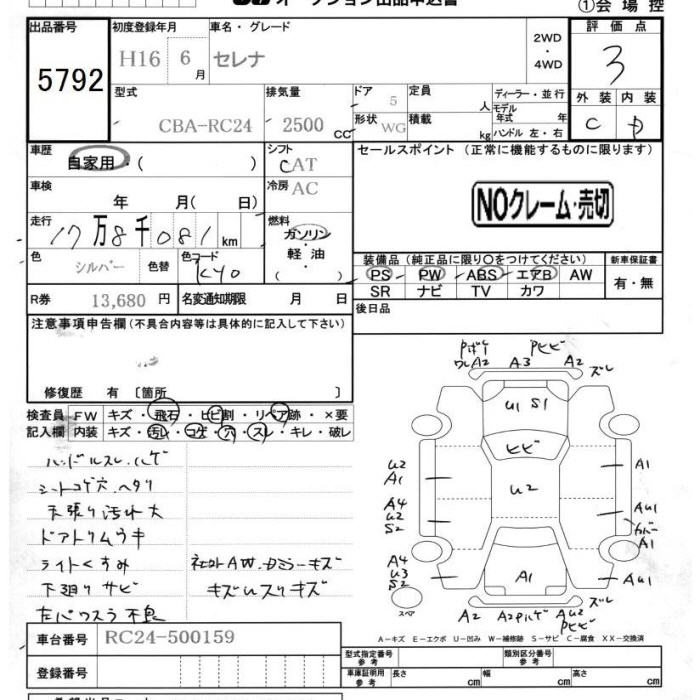 オークション出品申込書
①会場控
出品番号 5792
初度登録年月 H16 6月
車名・グレード セレナ
2WD・4WD
評価点 3
型式 CBA-RC24
排気量 2500cc
ドア 5
形状 WG
定員 人
積載 kg
ディーラー・並行
モデル年式 年
ハンドル 左・右
外装 C
内装 D
車歴 自家用・( )
シフト CAT
冷房 AC
車検 年 月( 日)
走行 17万8千081km
燃料 ガソリン・軽油 ( )
色 シルバー 色替
色コード KY0
R券 13,680円
名変通知期限 月 日
セールスポイント (正常に機能するものに限ります)
NOクレーム・売切
装備品 (純正品に限り○をつけてください)
新車保証書
PS PW ABS エアB AW
SR ナビ TV カワ
有・無
後日品
注意事項申告欄 (不具合内容等は具体的に記入して下さい)
修復歴 有 〔箇所 〕
検査員 FW キズ・飛石・ヒビ割・リペア跡・×要
記入欄 内装 キズ・汚レ・コゲ・穴・スレ・キレ・破レ
ハンドルスレ.ハゲ
シートコゲ穴.ヘタリ
天張り汚れ大
ドアトリムウキ
ライトくすみ
下廻りサビ
左パワスラ不良
社外AW.ダミーキズ
キズムスリキズ
Pボケ Pヒビ
ワレA2 A3 A2 ズレ
U1 S1
ヒビ
U2
A1
U2
A1
A4
U2
S2
A4
U3
S2
A1
AU1
カバー
A1
AU1
スペア
A2 A2Pハゲ AU2 ズレ
Pヒビ
A-キズ E-エクボ U-凹み W-補修跡 S-サビ C-腐食 XX-交換済
車台番号 RC24-500159
登録番号
型式指定番号 参考
類別区分番号 参考
車庫証明用 参考 長さ cm 幅 cm 高さ cm